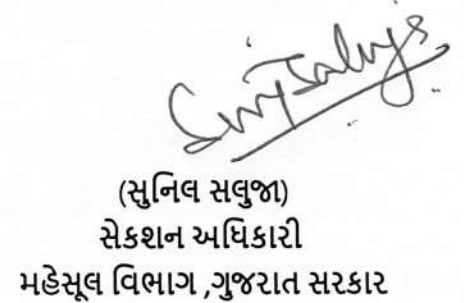 (સુનિલ સલુજા)
સેકશન અધિકારી
મહેસૂલ વિભાગ ,ગુજરાત સરકાર